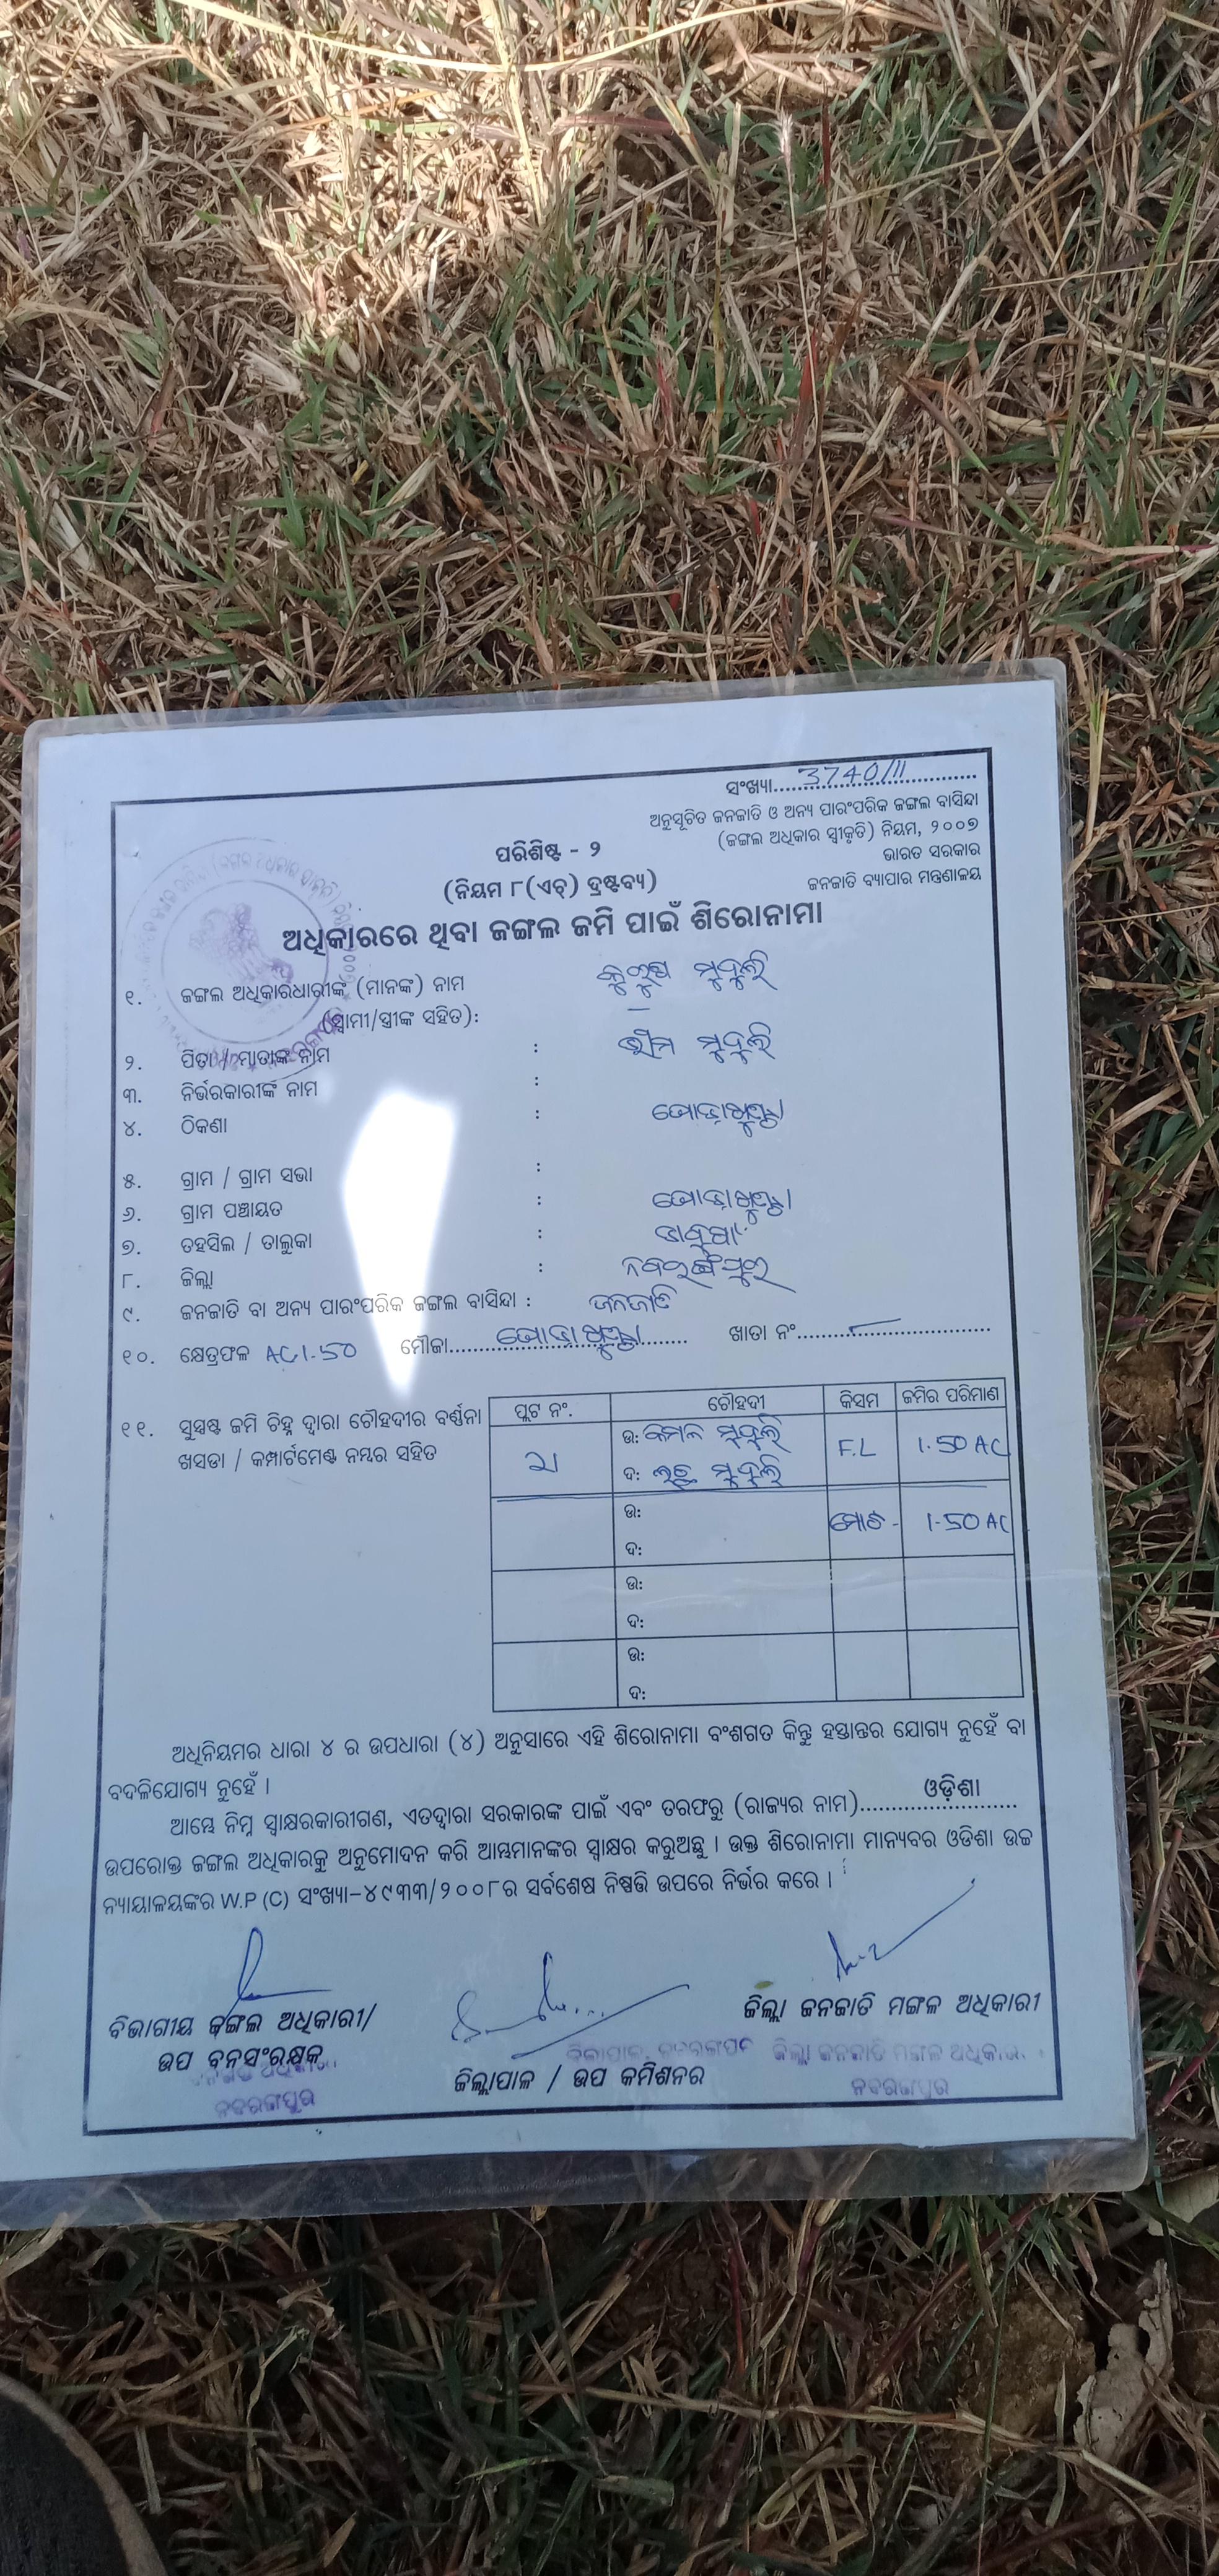 ସଂଖ୍ୟା..... 3740/11 .....
ଅନୁସୂଚିତ ଜନଜାତି ଓ ଅନ୍ୟ ପାରଂପରିକ ଜଙ୍ଗଲ ବାସିନ୍ଦା
(ଜଙ୍ଗଲ ଅଧିକାର ସ୍ୱୀକୃତି) ନିୟମ, ୨୦୦୭
ଭାରତ ସରକାର
ଜନଜାତି ବ୍ୟାପାର ମନ୍ତ୍ରଣାଳୟ
ପରିଶିଷ୍ଟ - ୨
(ନିୟମ ୮(ଏଚ୍) ଦ୍ରଷ୍ଟବ୍ୟ)
ଅଧିକାରରେ ଥିବା ଜଙ୍ଗଲ ଜମି ପାଇଁ ଶିରୋନାମା
୧. ଜଙ୍ଗଲ ଅଧିକାରଧାରୀଙ୍କ (ମାନଙ୍କ) ନାମ ମୁଦୁଲି
(ସ୍ୱାମୀ/ସ୍ତ୍ରୀଙ୍କ ସହିତ):
୨. ପିତା / ମାତାଙ୍କ ନାମ : ଭୀମ ମୁଦୁଲି
୩. ନିର୍ଭରକାରୀଙ୍କ ନାମ :
୪. ଠିକଣା :
୫. ଗ୍ରାମ / ଗ୍ରାମ ସଭା :
୬. ଗ୍ରାମ ପଞ୍ଚାୟତ :
୭. ତହସିଲ / ତାଲୁକା : ଡାବୁଗାଁ
୮. ଜିଲ୍ଲା : ନବରଙ୍ଗପୁର
୯. ଜନଜାତି ବା ଅନ୍ୟ ପାରଂପରିକ ଜଙ୍ଗଲ ବାସିନ୍ଦା : ଜନଜାତି
୧୦. କ୍ଷେତ୍ରଫଳ AC 1.50 ମୌଜା..... ଖାତା ନଂ.....
୧୧. ସୁସ୍ପଷ୍ଟ ଜମି ଚିହ୍ନ ଦ୍ୱାରା ଚୌହଦୀର ବର୍ଣ୍ଣନା
ଖସଡା / କମ୍ପାର୍ଟମେଣ୍ଟ ନମ୍ବର ସହିତ
ପ୍ଲଟ ନଂ. ଚୌହଦୀ କିସମ ଜମିର ପରିମାଣ
ଉ: କମଳ ମୁଦୁଲି F.L 1.50 AC
ଦ: ମୁଦୁଲି
ଉ: ମୋଟ - 1.50 AC
ଦ:
ଉ:
ଦ:
ଉ:
ଦ:
ଅଧିନିୟମର ଧାରା ୪ ର ଉପଧାରା (୪) ଅନୁସାରେ ଏହି ଶିରୋନାମା ବଂଶଗତ କିନ୍ତୁ ହସ୍ତାନ୍ତର ଯୋଗ୍ୟ ନୁହେଁ ବା
ବଦଳିଯୋଗ୍ୟ ନୁହେଁ ।
ଆମ୍ଭେ ନିମ୍ନ ସ୍ୱାକ୍ଷରକାରୀଗଣ, ଏତଦ୍ଦ୍ୱାରା ସରକାରଙ୍କ ପାଇଁ ଏବଂ ତରଫରୁ (ରାଜ୍ୟର ନାମ)..... ଓଡ଼ିଶା .....
ଉପରୋକ୍ତ ଜଙ୍ଗଲ ଅଧିକାରକୁ ଅନୁମୋଦନ କରି ଆମ୍ଭମାନଙ୍କର ସ୍ୱାକ୍ଷର କରୁଅଛୁ । ଉକ୍ତ ଶିରୋନାମା ମାନ୍ୟବର ଓଡିଶା ଉଚ୍ଚ
ନ୍ୟାୟାଳୟଙ୍କର W.P (C) ସଂଖ୍ୟା-୪୯୩୩/୨୦୦୮ର ସର୍ବଶେଷ ନିଷ୍ପତ୍ତି ଉପରେ ନିର୍ଭର କରେ ।
ବିଭାଗୀୟ ଜଙ୍ଗଲ ଅଧିକାରୀ/
ଉପ ବନସଂରକ୍ଷକ
ନବରଙ୍ଗପୁର
ଜିଲ୍ଲାପାଳ, ନବରଙ୍ଗପୁର
ଜିଲ୍ଲାପାଳ / ଉପ କମିଶନର
ଜିଲ୍ଲା ଜନଜାତି ମଙ୍ଗଳ ଅଧିକାରୀ
ଜିଲ୍ଲା ଜନଜାତି ମଙ୍ଗଳ ଅଧିକାରୀ
ନବରଙ୍ଗପୁର